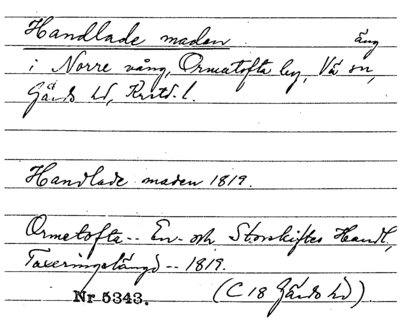 Handlade maden äng
i Norre vång, Ormatofta by, Vä sn,
Gärds hd, Krstd. l.
Handlade maden 1819.
Ormetofta -- En- och Storskiftes Handl,
Taxeringslängd -- 1819.
Nr 5343. (C 18 Gärds hd)